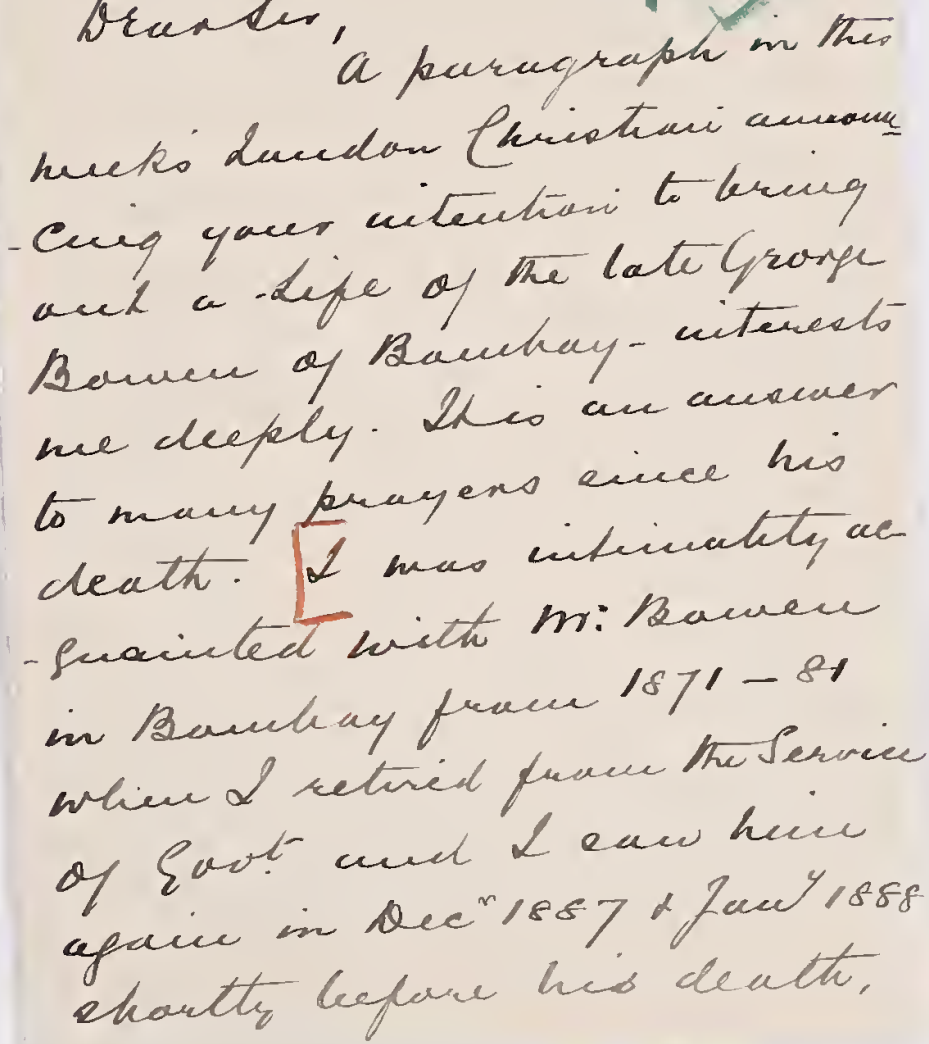 Dear Sir,
A paragraph in this
week's London Christian announ=
-cing your intention to bring
out a Life of the late George
Bowen of Bombay - interests
me deeply. This an answer
to many prayers since his
death. I was intimately ac-
-quainted with Mr. Bowen
in Bombay from 1871 – 81
when I retired from the Service
of Govt. and I saw him
again in Decr 1887 & Jany 1888
shortly before his death,